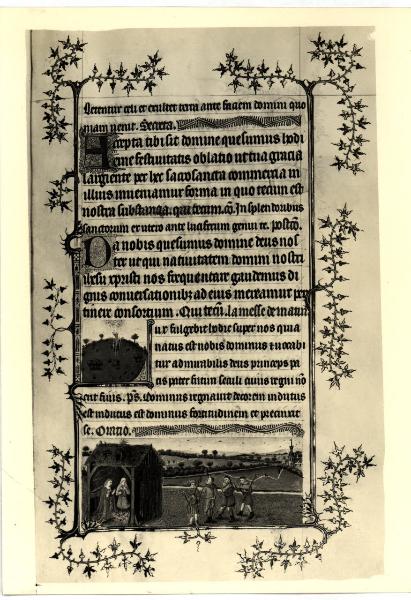 Letentur celi et exultet terra ante faciem domini quo
niam venit. Secreta.
Accepta tibi sit domine quesumus hodi
erne festivitatis oblatio ut tua gracia
largiente per hec sacrosancta commercia in
illius inveniamur forma in quo tecum est
nostra substancia. qui tecum. cō. In splendoribus
sanctorum ex utero ante luciferum genui te. postcō.
Da nobis quesumus domine deus nos
ter ut qui nativitatem domini nostri
ihesu xpristi nos frequentare gaudemus di
gnis conversationibꝫ ad eius mereamur per
tinere consortium. Qui tecū. la messe de
ux fulgebit hodie super nos quia
natus est nobis dominus et vocabi
tur admirabilis deus princeps pa
cis pater futuri seculi cuius regni nō
erit finis. pš. Dominus regnavit decorem indutus
est indutus est dominus fortitudinem et precinxit
se. Oratio.